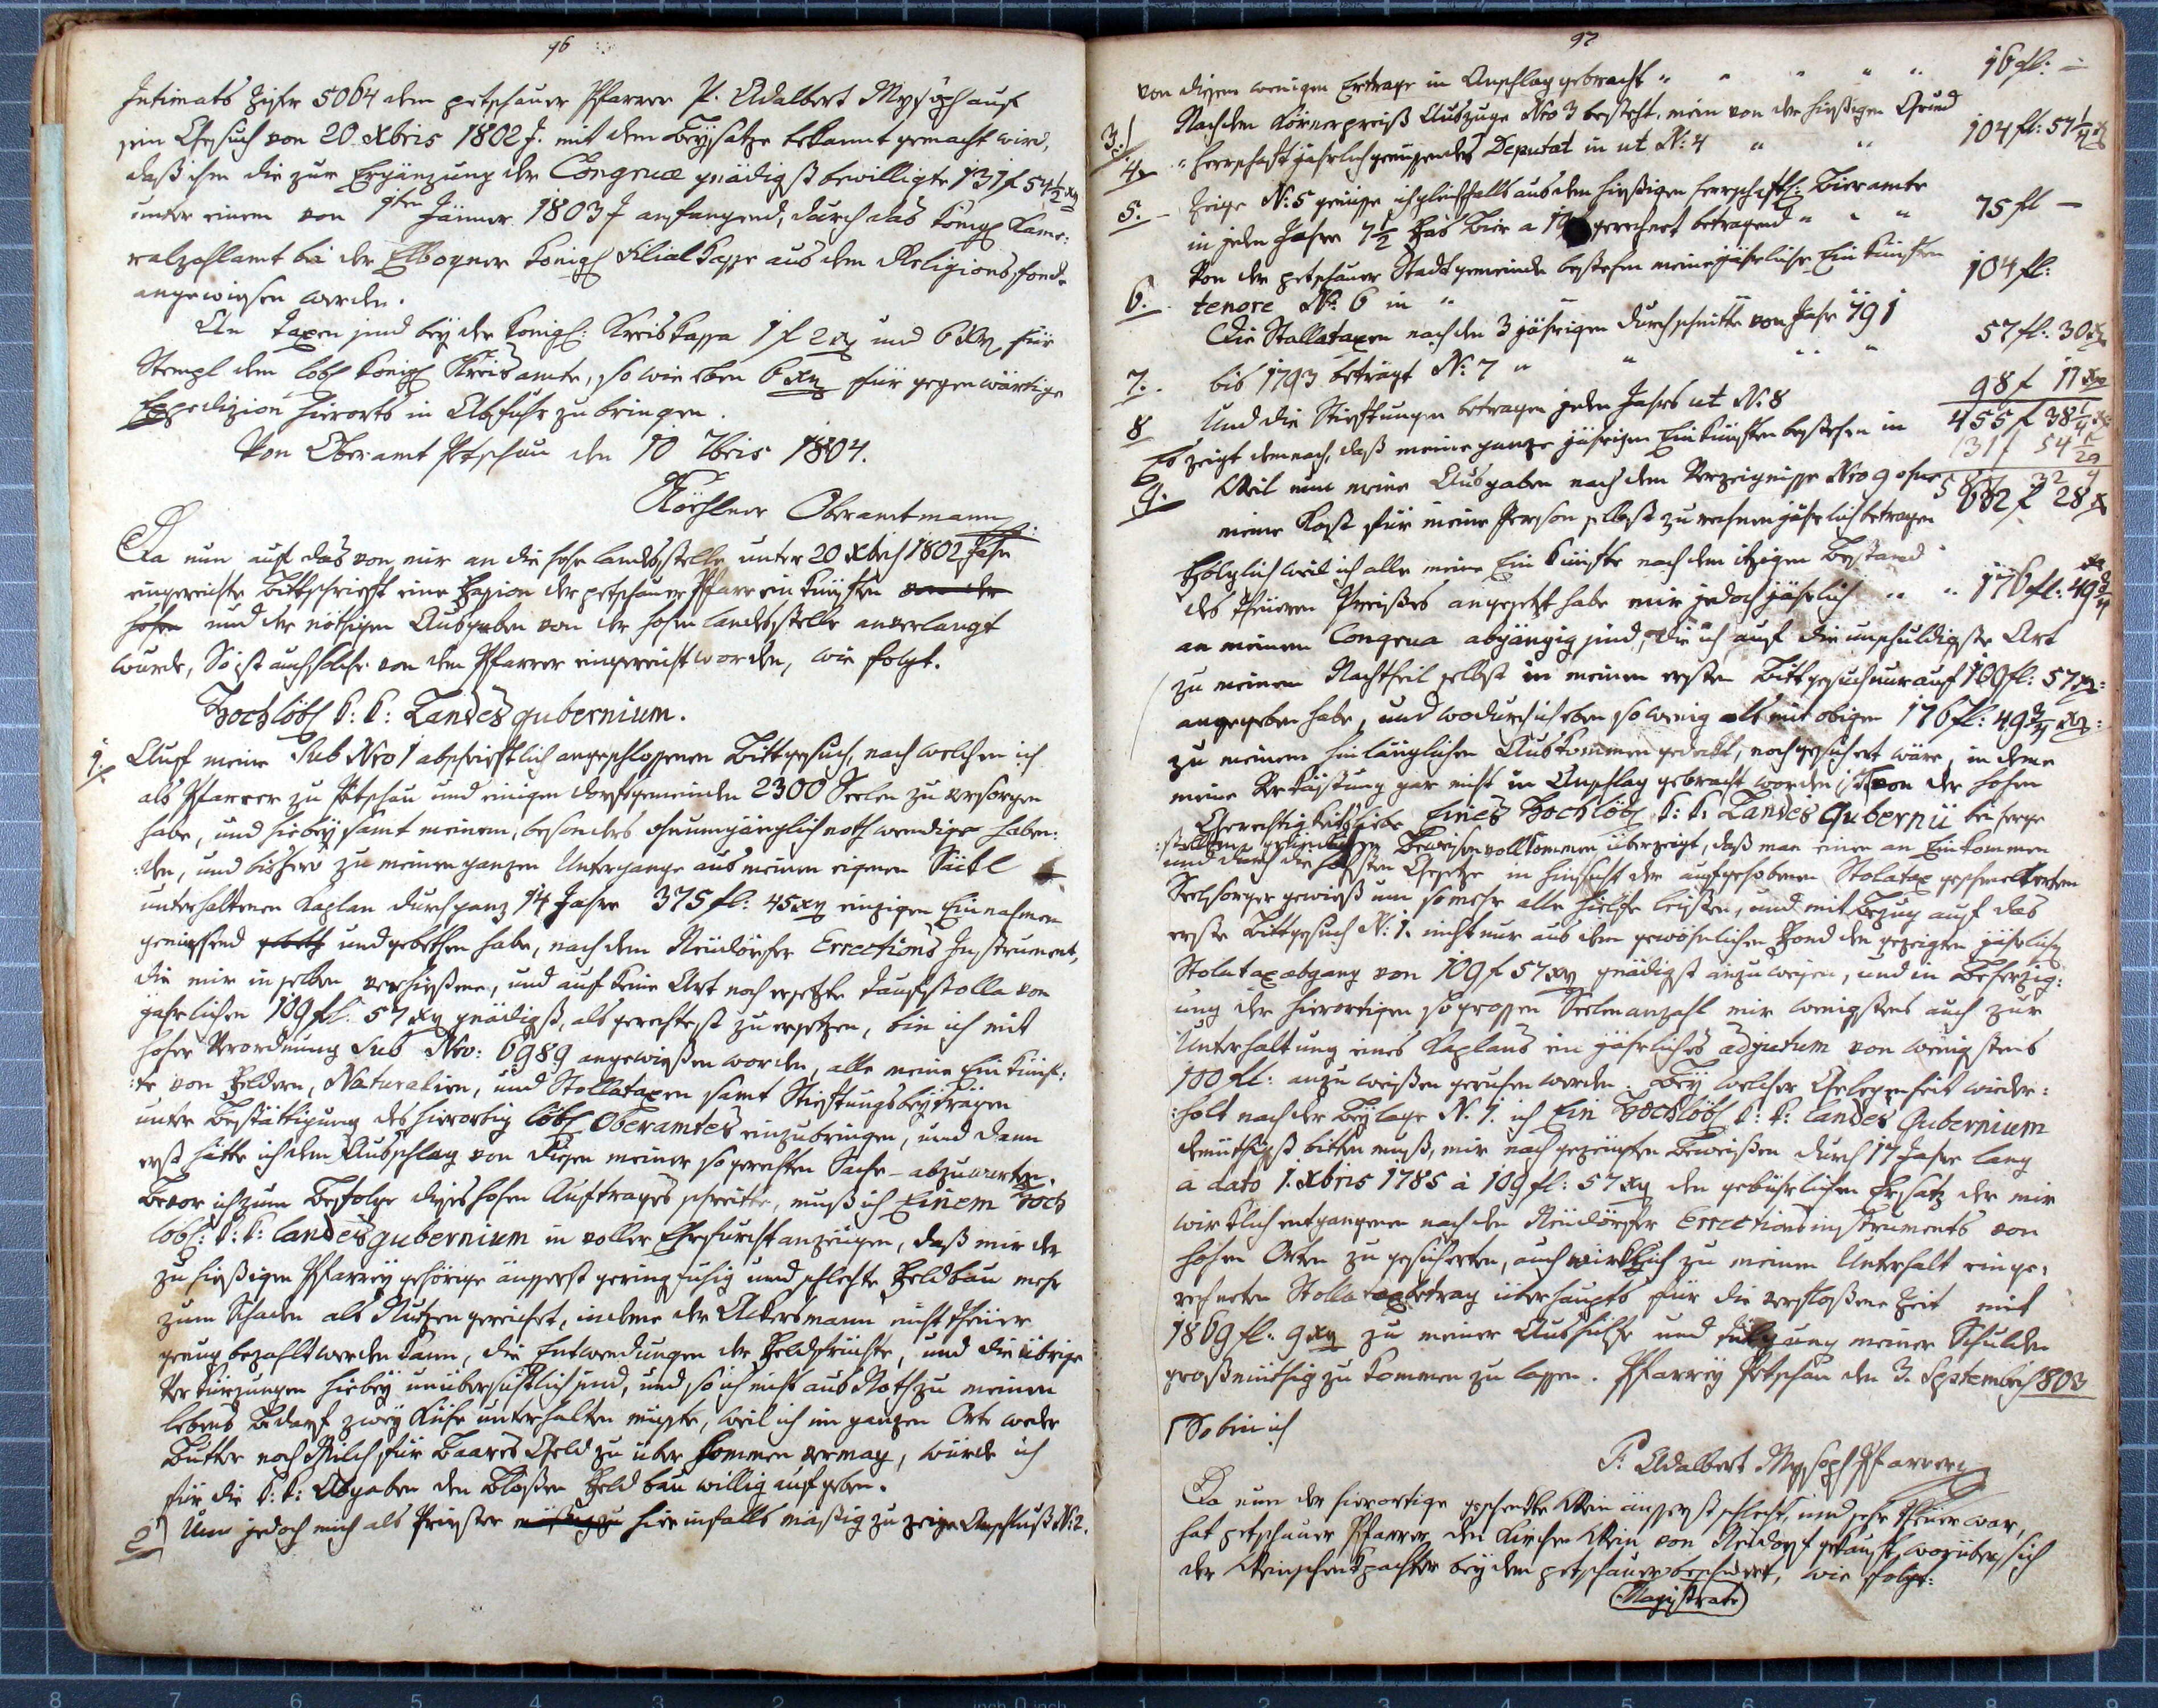 96
Intimats Zifr 5064 dem petschauer Pfarrer P. Adalbert Mysoph auf
sein Gesuch von 20 Xbris 1802 J. mit dem Beysatze bekannt gemacht wird,
daß ihm die zur Ergänzung der Congruae gnädigst bewilligte 131 f 54 1/2 xr
unter einem von 1ten Jänner 1803 J anfangend, durch das königl Kame:
ralzahlamt bei der Elbogner königl Filialkasse aus dem Religionsfond
angewiesen werden.
An Taxen sind bey der königl: Kreiskassa 1 f 2 xr und 6 xr für
Stempl dem löbl königl Kreisamte, so wie eben 6 xr für gegenwärtige
Expedizion hierorts in Abfuhr zu bringen.
Von Oberamt Petschau den 10 7bris 1804.
Oberamtmann
Da nun auf das von mir an die hohe Landesstelle unter 20 Xbris 1802 Jahr
eingereichte Bittschrift eine Fassion der petschauer Pfarreinkünften von der
hohen und der nöthigen Ausgaben von der hohen Landesstelle anverlangt
wurde, So ist auch solche von dem Pfarrer eingereicht worden, wie folgt.
Hochlöbl k: k: Landesgubernium.
1. Auf meine Sub Nro 1 abschriftlich angeschlossenen Bittgesuch, nach welchen ich
als Pfarrer zu Petschau und einigen Dorfsgemeinden 2300 Seelen zu versorgen
habe, und hiebey samt meinem, besonders ohnumgänglich nothwendige haben:
:den, und bishero zu meinen ganzen Untergange aus meinem eigenen Säckl
unterhaltenen Kaplan durch ganz 14 Jahre 375 fl: 45 xr einzigen Einnahmen
geniessend gebeth und gebethen habe, nach dem Neudörfer Errections Instrument,
die mir in selben verhiessene, und auf keine Art noch ersetzte Taufstolla von
jährlichen 109 fl: 57 xr gnädigst, als gerechtest zu ersetzen, bin ich mit
hoher Verordnung Sub Nro: 6989 angewiesen worden, alle meine Einkünf:
:te von Feldern, Naturalien, und Stollataxen samt Stiftungsbeyträgen
unter Bestättigung des hierortig löbl Oberamtes einzubringen, und dann
erst hätte ich den Ausschlag von diesen meiner so gerechten Sache – abzuwarten.
Bevor ich zum Befolge dieses hohen Auftrages schreitte, muß ich Einem Hoch
löbl: k: k: Landesgubernium in voller Ehrfurcht anzeigen, daß mir der
zu hießigen Pfarrey gehörige äusserst geringfühig und schlechte Feldbau mehr
zum Schaden als Nutzen gereichet, indeme der Ackersmann nicht theuer
genug bezahlt werden kann, die Entwendungen der Feldfrüchte, und die übrige
Verkürzungen hiebey unübersichtlich sind, und so ich nicht aus Noth zu meinen
lebens Bedarf zwey Kühe unterhalten müsste, weil ich im ganzen Orte weder
Butter noch Milch für Baares Geld zu überkommen vermag, würde ich
für die k: k: Abgaben den Bloßen Feldbau willig aufgeben.
2) Um jedoch mich als Priester hierinfalls mässig zu zeigen Anschluß N: 2.
97
von diesem wenigen Ertrage in Anschlag gebracht " " " " " 16 fl: –
3./ Nach dem Körnerpreiß Auszuge Nro 3 besteht, mein von der hießigen Grund
4. " Herrschaft jährlich genüssendes Deputat in ut N: 4 " " 104 fl: 57 1/4 xr
5. – Zeige N: 5 genüsse ich gleichfalls aus dem hießigen herrschaftl: Bieramte
in jeden Jahre 7 1/2 Faß Bier a 10 gerechnet betragend " " " 75 fl –
6. Von der petschauer Stadtgemeinde bestehen meine jährliche Einkünften
tenore N: 6 in " " " 104 fl:
Die Stollataxen nach den 3 jährigen Durchschnitte von Jahr 791
7. bis 1793 beträgt N: 7 " " " " " 57 fl: 30 xr
8 Und die Stiftungen betragen jeden Jahrs ut N: 8 98 f 11 xr
Es zeigt demnach, daß meine ganze jährigen Einkünften bestehen in 455 f 38 1/4 xr
131 f 54
9. Weil nun meine Ausgaben nach dem Verzeignisse Nro 9 ohne
meine Kost für meine Person selbst zu rechnen jährlich betragen 632 f 28 x
Fölglich weil ich alle meine Einkünfte nach dem itzigen Bestand
des theueren Preißes angesetzt habe mir jedoch jährlich " " 176 fl: 49 3/4
an meinen Congrua abgängig sind, die ich auf die unschuldigste Art
zu meinen Nachtheil selbst in meinen ersten Bittgesuch nur auf 109 fl: 57 xr:
angegeben habe, und wodurch ich eben so wenig als mit obigen 176 fl: 49 3/4 xr:
zu meinem hinlänglichen Auskommen gedeckt, noch gesichert wäre, in deme
meine Verköstung gar nicht in Anschlag gebracht worden ist von der hohen
Gerechtigkeitsliebe Eines Hochlöbl k: k: Landes Gubernii bei herge
:stellten gründlichen Beweisen vollkommen überzeigt, daß man einen an Einkommen
und durch die höchsten Gesetze in Hinsicht der aufgehobenen Stolatax geschmelerten
Seelsorger gewieß um so mehr alle Hielfe leisten, und mit Bezug auf das
erste Bittgesuch N: 1. nicht nur aus dem gewöhnlichen Fond den gezeigten jährlichen
Stolataxabgang von 109 f 57 xr gnädigst anzuweisen, und in Beherzig:
ung der hierortigen so grossen Seelenanzahl mir wenigstens auch zur
Unterhaltung eines Kaplans ein jährliches adjutum von wenigstens
100 fl: anzuweißen geruhen werden. Bey welcher Gelegenheit wieder:
:holt nach der Beylage N. 1. ich Ein Hochlöbl k: k: Landes Gubernium
demüthigst bitten muß, mir nach gezeigten Beweißen durch 17 Jahre lang
a dato 1. Xbris 1785 à 109 fl: 57 xr den gebührlichen Ersatz der mir
wirklich entgangenen nach den Neudörfer Errectionsinstruments von
hohen Orten zugesicherten, auch wirklich zu meinen Unterhalt einge:
rechneten Stollataxbetrag überhaupts für die verflossene Zeit mit
1869 fl: 9 xr zu meiner Aushülfe und Tilgung meiner Schulden
großmüthig zu kommen zu lassen. Pfarrey Petschau den 3. September 1803
So bin ich
P: Adalbert Mysoph Pfarrer
Da nun der hierortige geschenkte Wein äusserst schlecht, und sehr theuer war,
hat petschauer Pfarrer den Kirchen Wein von Neudorf gekauft, worüber sich
der Weinschenkpachter bey dem petschauer beschwert, wie folgt:
Magistrate